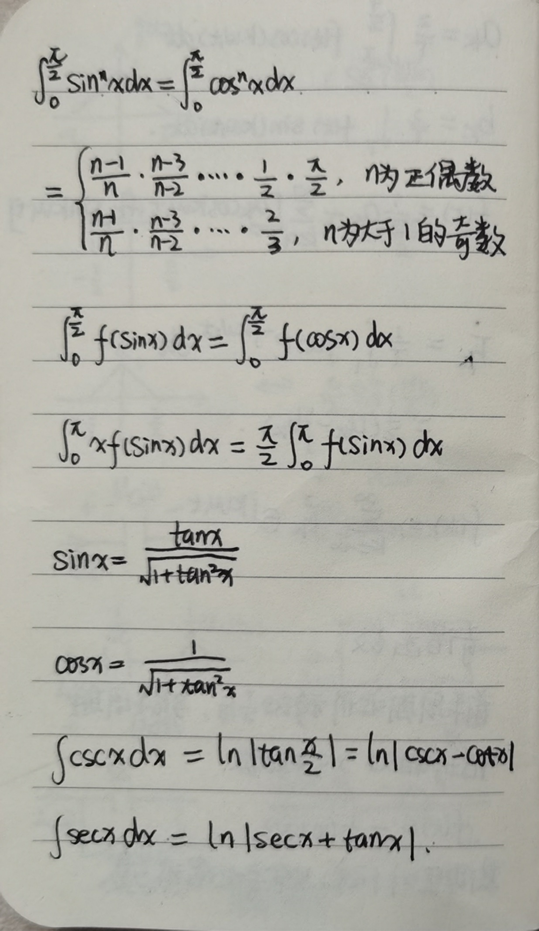 ∫₀^(π/2) sinⁿx dx = ∫₀^(π/2) cosⁿx dx
= { (n-1)/n · (n-3)/(n-2) · ···· · 1/2 · π/2, n为正偶数
(n-1)/n · (n-3)/(n-2) · ··· · 2/3, n为大于1的奇数
∫₀^(π/2) f(sinx) dx = ∫₀^(π/2) f(cosx) dx
∫₀^π xf(sinx) dx = π/2 ∫₀^π f(sinx) dx
sinx = tanx/√(1+tan²x)
cosx = 1/√(1+tan²x)
∫cscx dx = ln|tan x/2| = ln|cscx-cotx|
∫secx dx = ln|secx+tanx|.